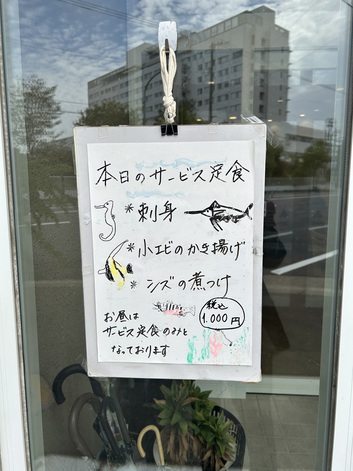 本日のサービス定食
*刺身
*小エビのかき揚げ
*シズの煮つけ
税込
1.000円
お昼は
サービス定食のみと
なっております